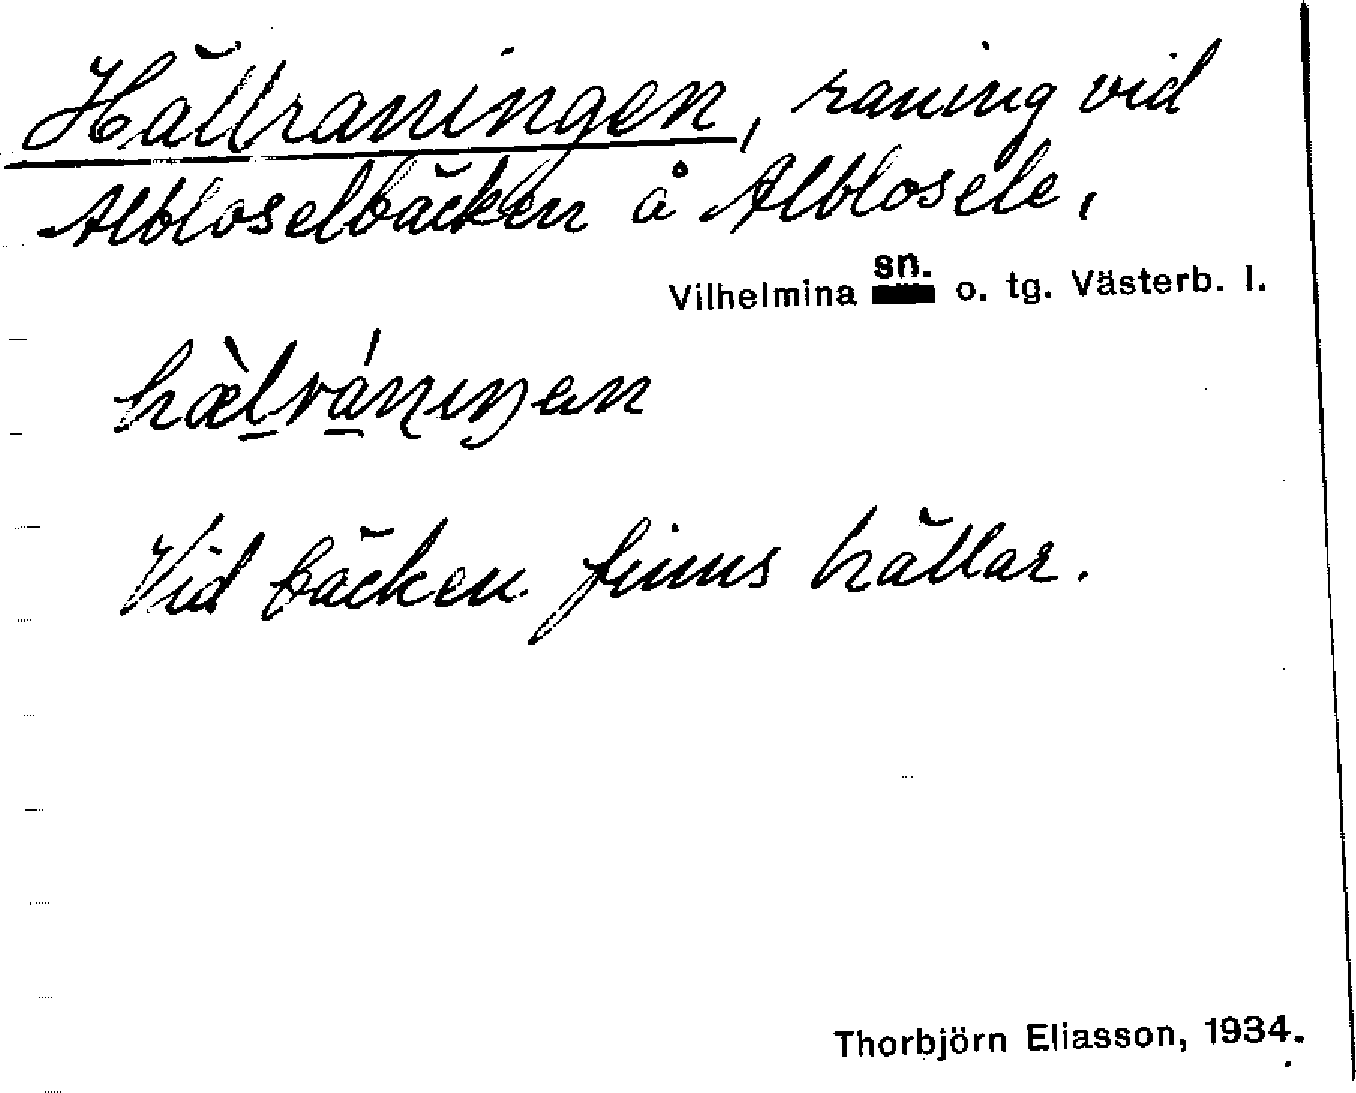 Hällraningen, raning vid
Albloselbäcken å Alblosele,
Vilhelmina sn. o. tg. Västerb. l.
hæ̀lránıŋen
Vid bäcken finns hällar.
Thorbjörn Eliasson, 1934.